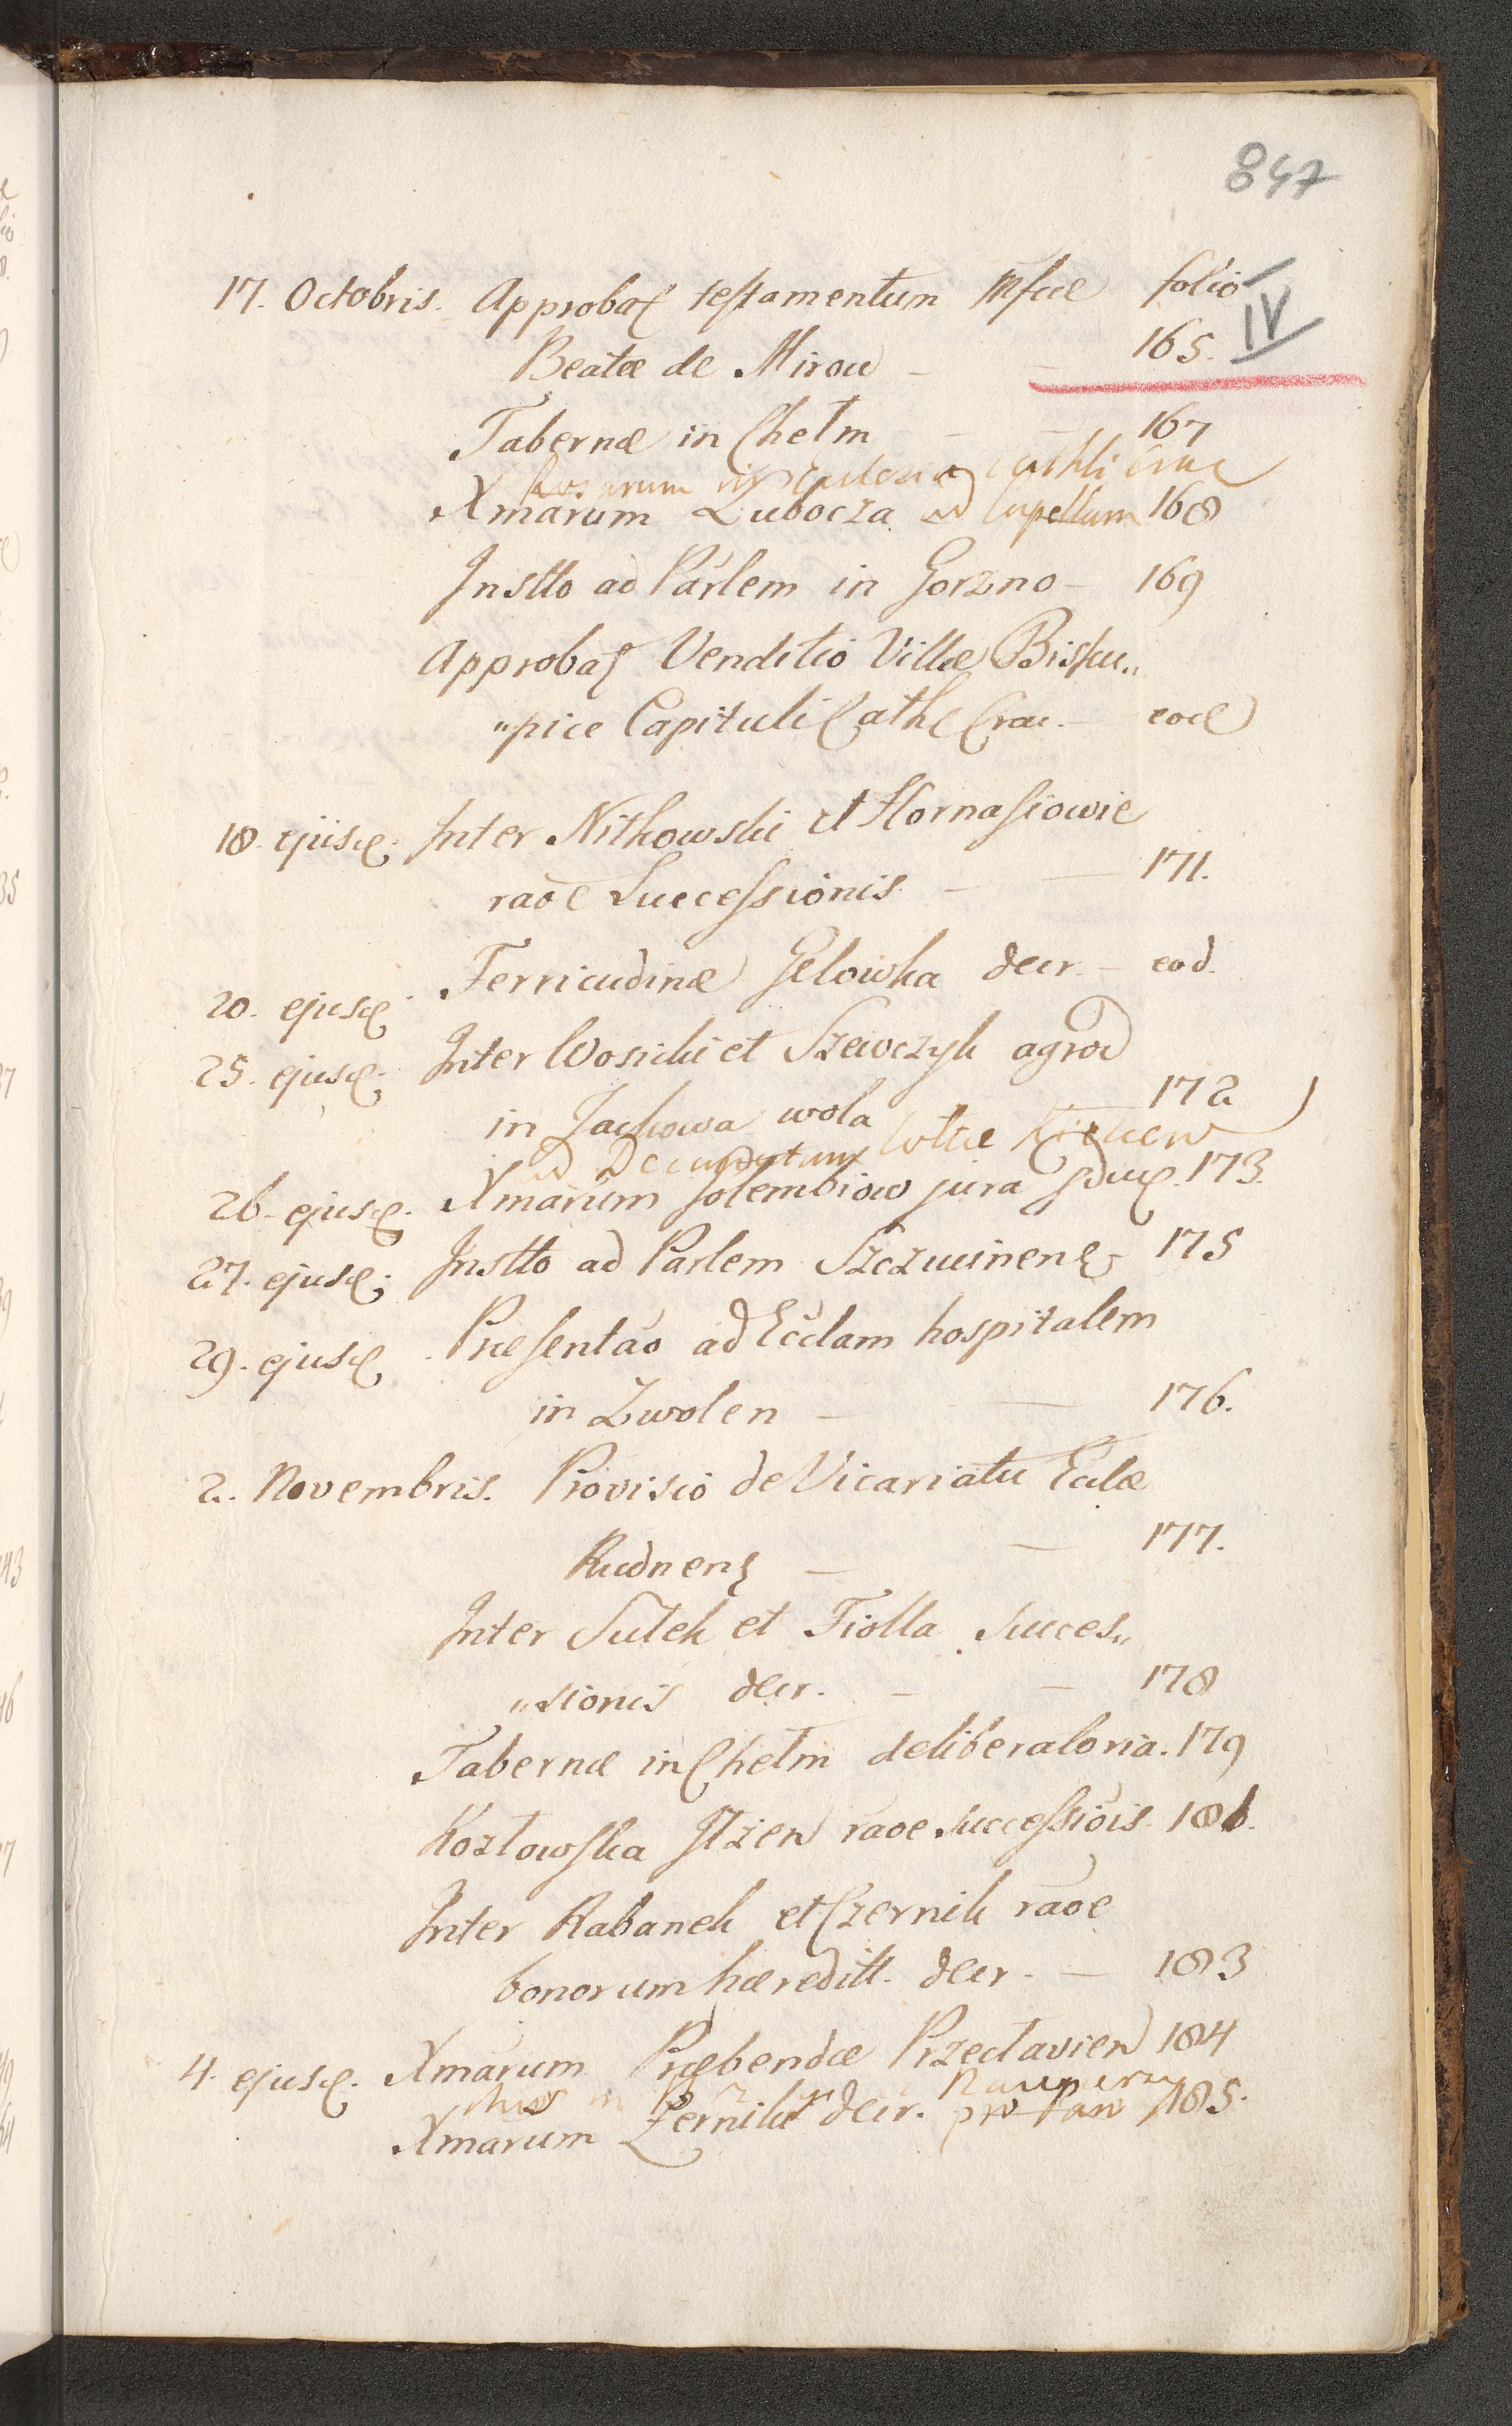 847
17. Octobris. Approbaʒ testamentum Mfcæ folio
IV
Beatæ de Mirow - - 165.
Tabernæ in Chełm - - 167
in Cathli Crac
Xmarum Lubocza ad Capellam 168
Instto ad Parlem in Gorzno - 169
Approbaʒ Venditio Villæ Bisku„
„pice Capituli Cath Crac. - eod
18. ejusd. Inter Nitkowski et Hornasiowie
raoe Successionis - - 171.
20. ejusd. Ferricudinæ Gelowka decr. - eod.
25. ejusd. Inter Wosicki et Szewczyk agrod
in Jackowa wola - 172
ad Decanatum Coltæ Kielcen
26. ejusd. Xmarum Golembiow jura 173.
27. ejusd. Instto ad Parlem Szczucinenʒ - 175
29. ejusd. Præsentao ad Ecclam hospitalem
in Zwolen - - 176.
2. Novembris. Provisio de Vicariatu Eclæ
Rudnenʒ - - 177.
Inter Sutek et Fiolla succes„
„sionis decr. - - 178
Tabernæ in Chełm deliberatoria. 179
Kozłowska Itzen raoe successiois. 181.
Inter Rabanek et Czernik raoe
bonorum hæreditt. decr. - 183
4. ejusd. Xmarum Præbendæ Przecłavien 184
Xmarum Zerniki decr. pro 185.